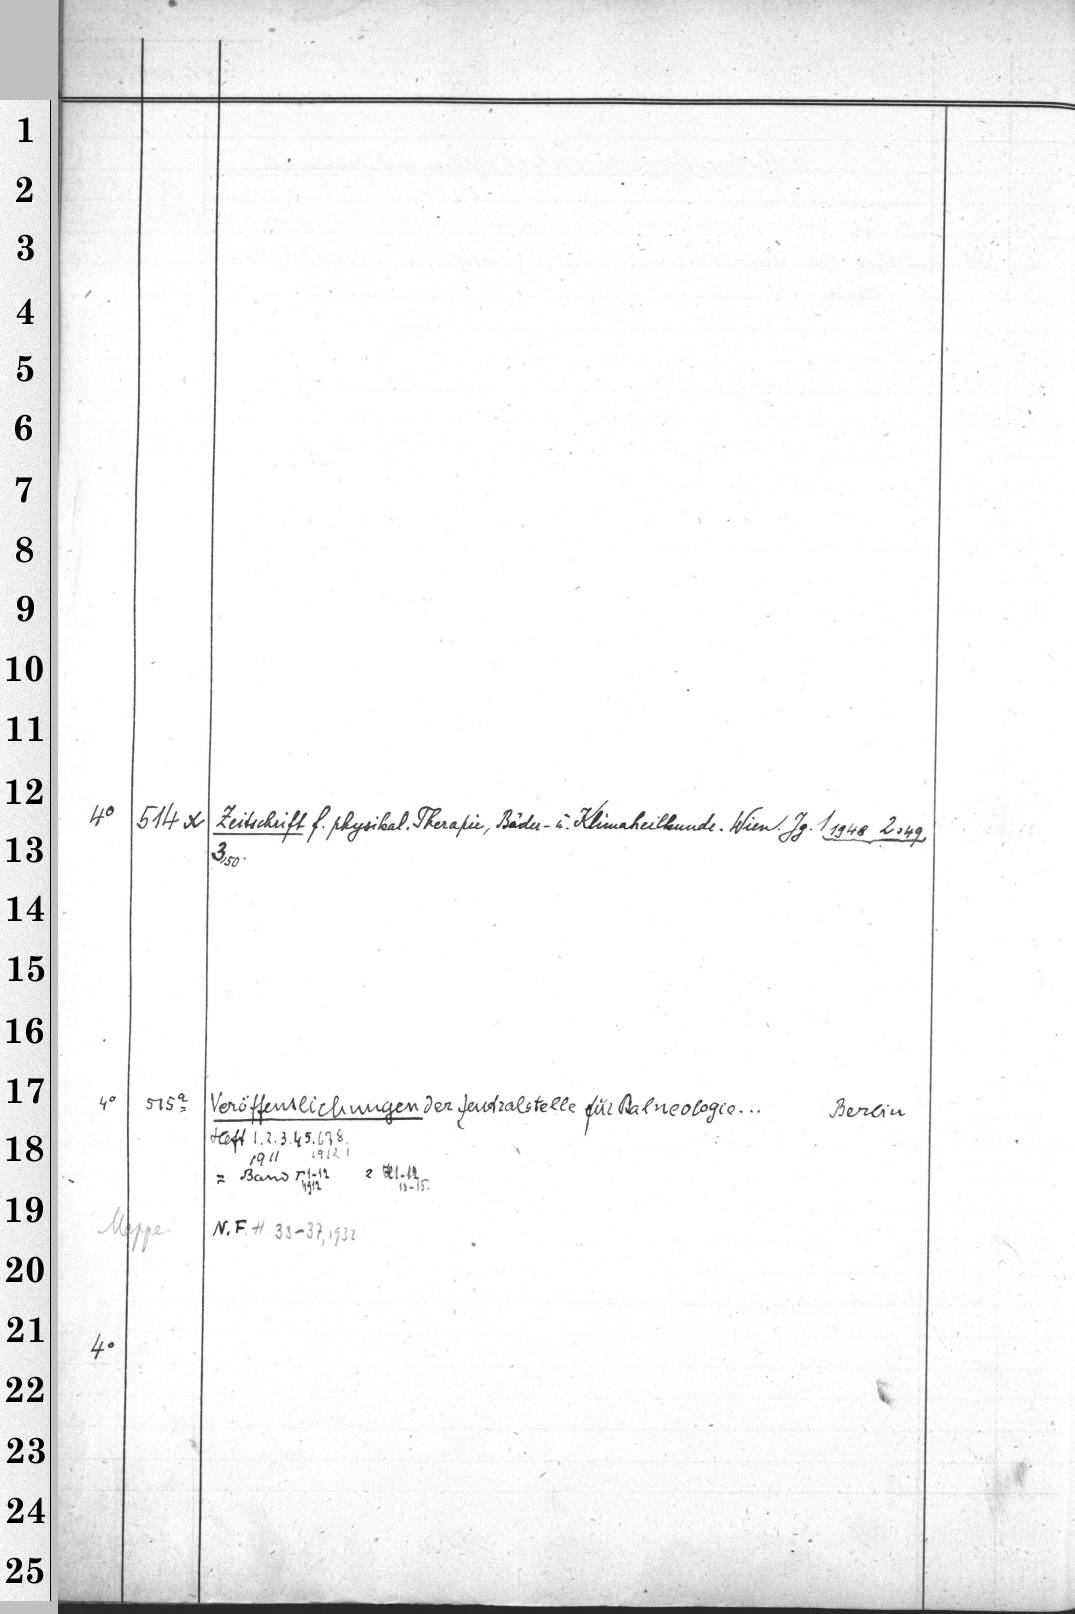 1
2
3
4
5
6
7
8
9
10
11
12
4° 514 x Zeitschrift f. physikal. Therapie, Bäder- u. Klimaheilkunde. Wien. Jg. 1 1948 2.49
13
3,50.
14
15
16
17
4° 515a Veröffentlichungen der Zentralstelle für Balneologie... Berlin
Heft 1.2.3.4.5.6.7.8.
18
1911 1912
= Band I 1-12 2 H1-12
1912 13-15.
19
Mappe N.F. H 33-37, 1932
20
21
4°
22
23
24
25